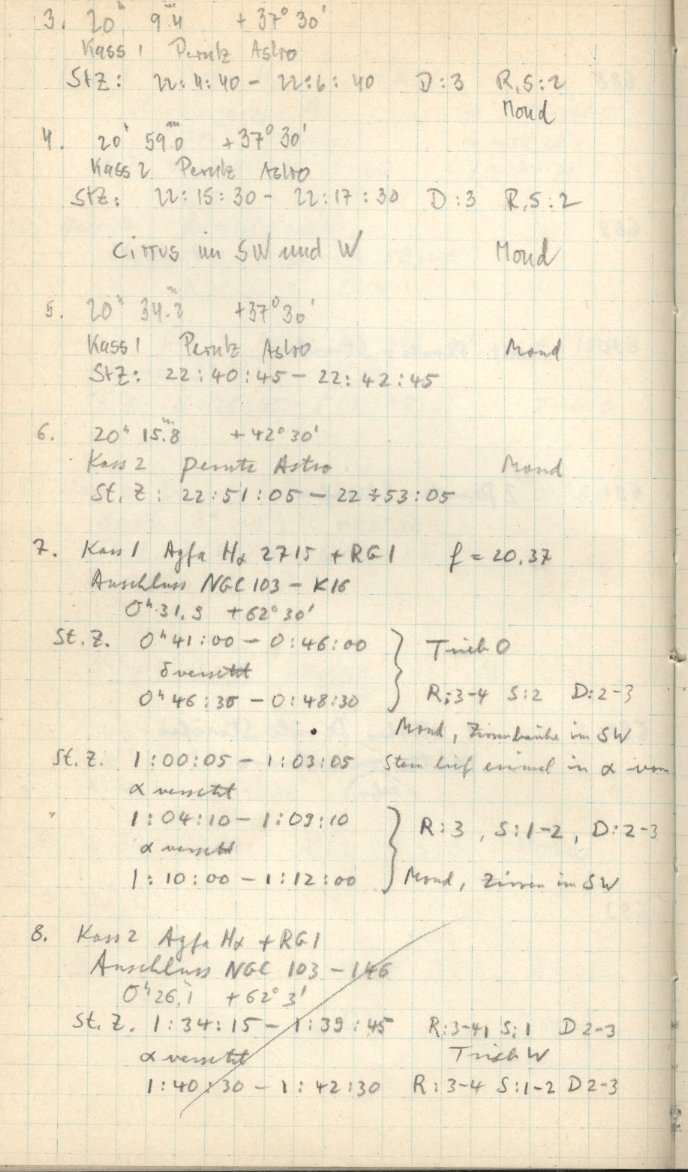 3. 20ʰ 9ᵐ4 +37°30'
Kass 1 Perutz Astro
StZ: 22:4:40 - 22:6:40 D:3 R,S:2
Mond
4. 20ʰ 59ᵐ0 +37°30'
Kass 2 Perutz Astro
StZ: 22:15:30 - 22:17:30 D:3 R,S:2
Cirrus im SW und W Mond
5. 20ʰ 34ᵐ +37°30'
Kass 1 Perutz Astro Mond
StZ: 22:40:45 - 22:42:45
6. 20ʰ 15ᵐ.8 +42°30'
Kass 2 Perutz Astro Mond
St.Z: 22:51:05 - 22:53:05
7. Kass 1 Agfa Hα 2715 + RG1 f = 20.37
Anschluss NGC 103 - K16
0ʰ31.9 +62°30'
St.Z. 0ʰ41:00 - 0:46:00 Trieb O
δ versetzt
0ʰ46:30 - 0:48:30 R:3-4 S:2 D:2-3
Mond, im SW
St.Z. 1:00:05 - 1:03:05 Stern lief einmal in α
α versetzt
1:04:10 - 1:09:10 R:3, S:1-2, D:2-3
α versetzt
1:10:00 - 1:12:00 Mond, Zirren im SW
8. Kass 2 Agfa Hα + RG1
Anschluss NGC 103 - 146
0ʰ26.1 +62°3'
St.Z. 1:34:15 - 1:39:45 R:3-4, S:1 D2-3
α versetzt Trieb W
1:40:30 - 1:42:30 R:3-4 S:1-2 D2-3